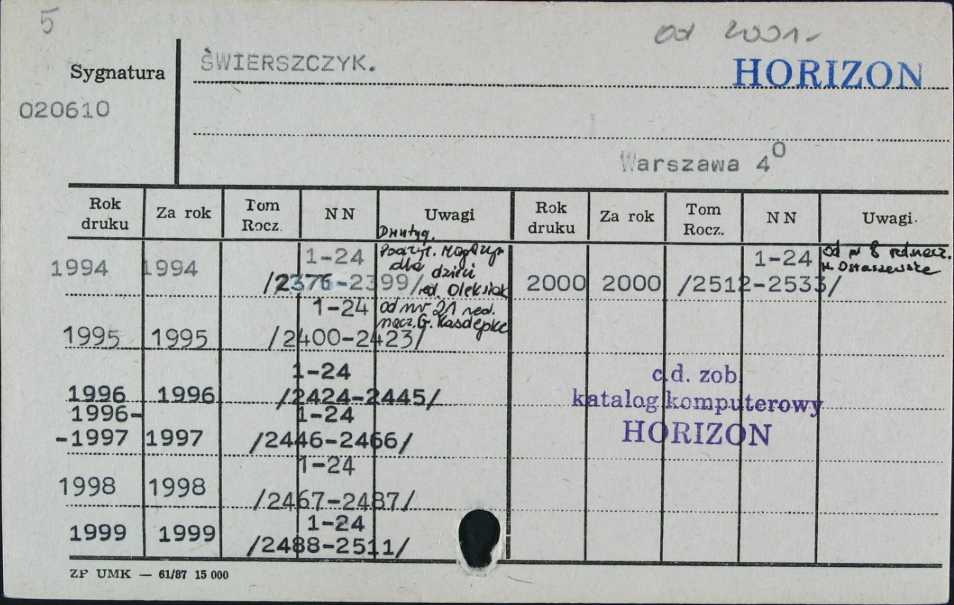 5
od 2001-
HORIZON
Sygnatura
ŚWIERSZCZYK.
020610
Warszawa 4⁰
Rok druku Za rok Tom Rocz. NN Uwagi Rok druku Za rok Tom Rocz. NN Uwagi
1994 1994 1-24 /2376-2399/ dla dzieci red.
1995 1995 1-24 /2400-2423/ od nr 21 red. nacz. G. Kasdepke
1996 1996 1-24 /2424-2445/
1996-
-1997 1997 1-24 /2446-2466/
1998 1998 1-24 /2467-2487/
1999 1999 1-24 /2488-2511/
2000 2000 1-24 /2512-2533/ od nr 8 red. nacz.
c.d. zob.
katalog komputerowy
HORIZON
ZP UMK — 61/87 15 000